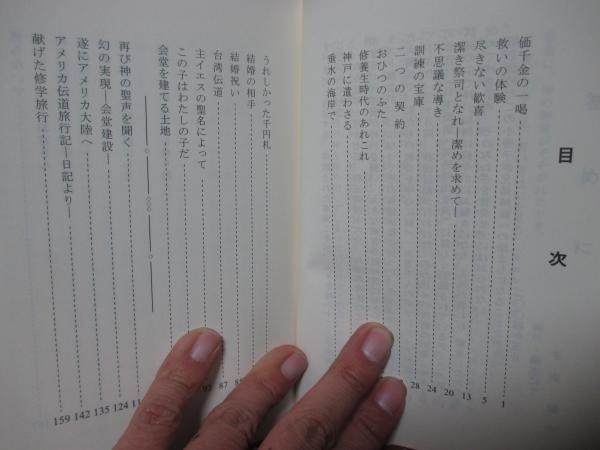 目次
価千金の一喝 1
救いの体験 5
尽きない歓喜 13
潔き祭司となれ―潔めを求めて― 20
不思議な導き 24
訓練の宝庫 28
二つの契約
おひつのふた
修養生時代のあれこれ
神戸に遣わさる
垂水の海岸で
うれしかった千円札
結婚の相手
結婚祝い
台湾伝道 87
主イエスの聖名によって 92
この子はわたしの子だ
会堂を建てる土地
再び神の聖声を聞く
幻の実現―会堂建設― 124
遂にアメリカ大陸へ 135
アメリカ伝道旅行記―日記より― 142
献げた修学旅行 159